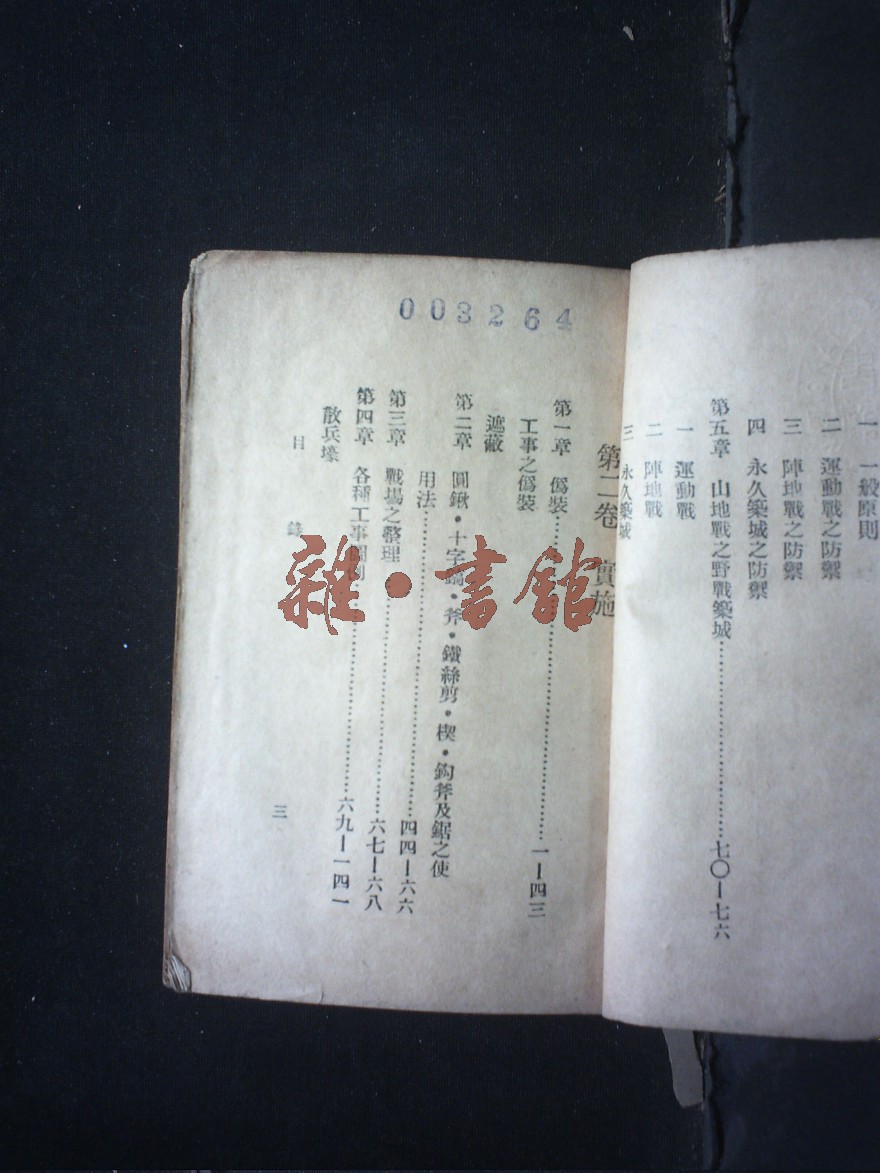 一 一般原則
二 運動戰之防禦
三 陣地戰之防禦
四 永久築城之防禦
第五章 山地戰之野戰築城……七〇—七六
一 運動戰
二 陣地戰
三 永久築城
003264
第二卷 實施
第一章 僞裝……一—四三
工事之僞裝
遮蔽
第二章 圓鍬·十字鎬·斧·鐵絲剪·楔·鈎斧及鋸之使
用法……四四—六六
第三章 戰場之整理……六七—六八
第四章 各種工事圖例……六九—一四一
散兵壕
目錄
三
雜·書館